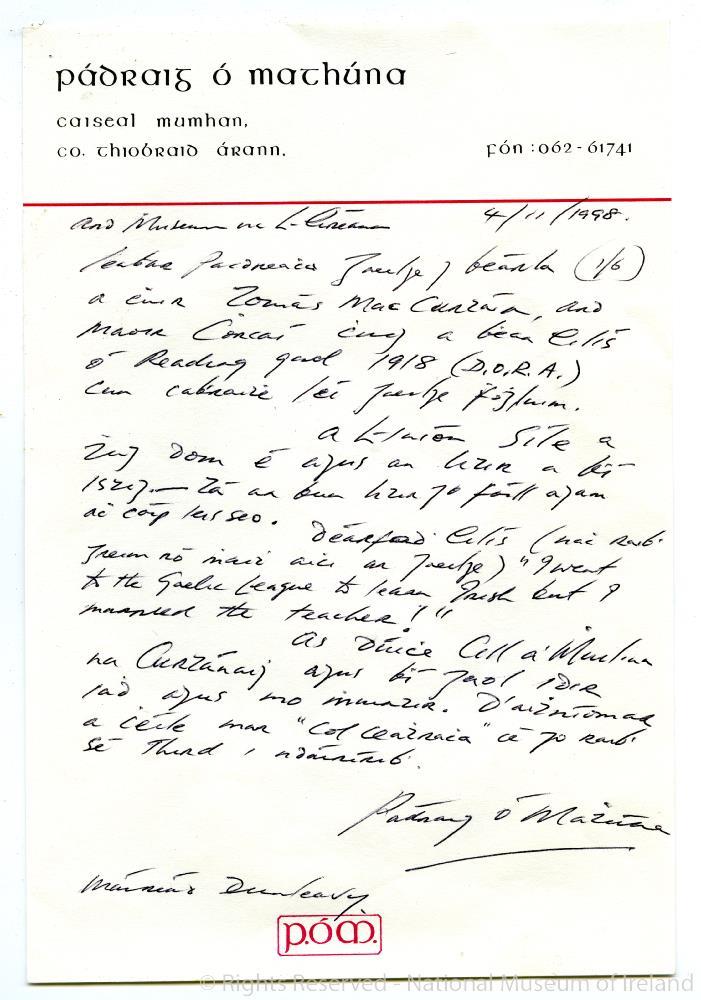 pádraig ó mathúna
caiseal mumhan,
co. thiobraid árann.
fón: 062-61741
4/11/1998.
Ard Museum na h-Éireann
leabhar Gaeilge 7 béarla (1/6)
a ċuir Tomás Mac Curtáin, Ard
Maor Ċorcaí ċuig a bean Eilís
ó Reading gaol 1918 (D.O.R.A.)
ċun cabraiṫe léi Gaeilge ḟoġluim.
a h-inion Síle a
ṫug dom é agus an litir a bí
istiġ — Tá an bun litir go fóill agam
aċ cóip leis seo.
Déarfaḋ Eilís (naċ raiḃ
greim ró maiṫ aici ar Gaeilge) "I went
to the Gaelic League to learn Irish but I
married the teacher!"
As Dúiċe Cill a' Mhuilinn
na Curtánaiġ agus bí gaol idir
iad agus mo ṁuintir. D'aiṫníomar
a ċéile mar "Col Ceaṫraċa" cé go raiḃ
sé Third, i ndáiríriḃ.
Pádraig Ó Maṫúna
Máiréad Dunlevy.
p.óm.
© Rights Reserved - National Museum of Ireland